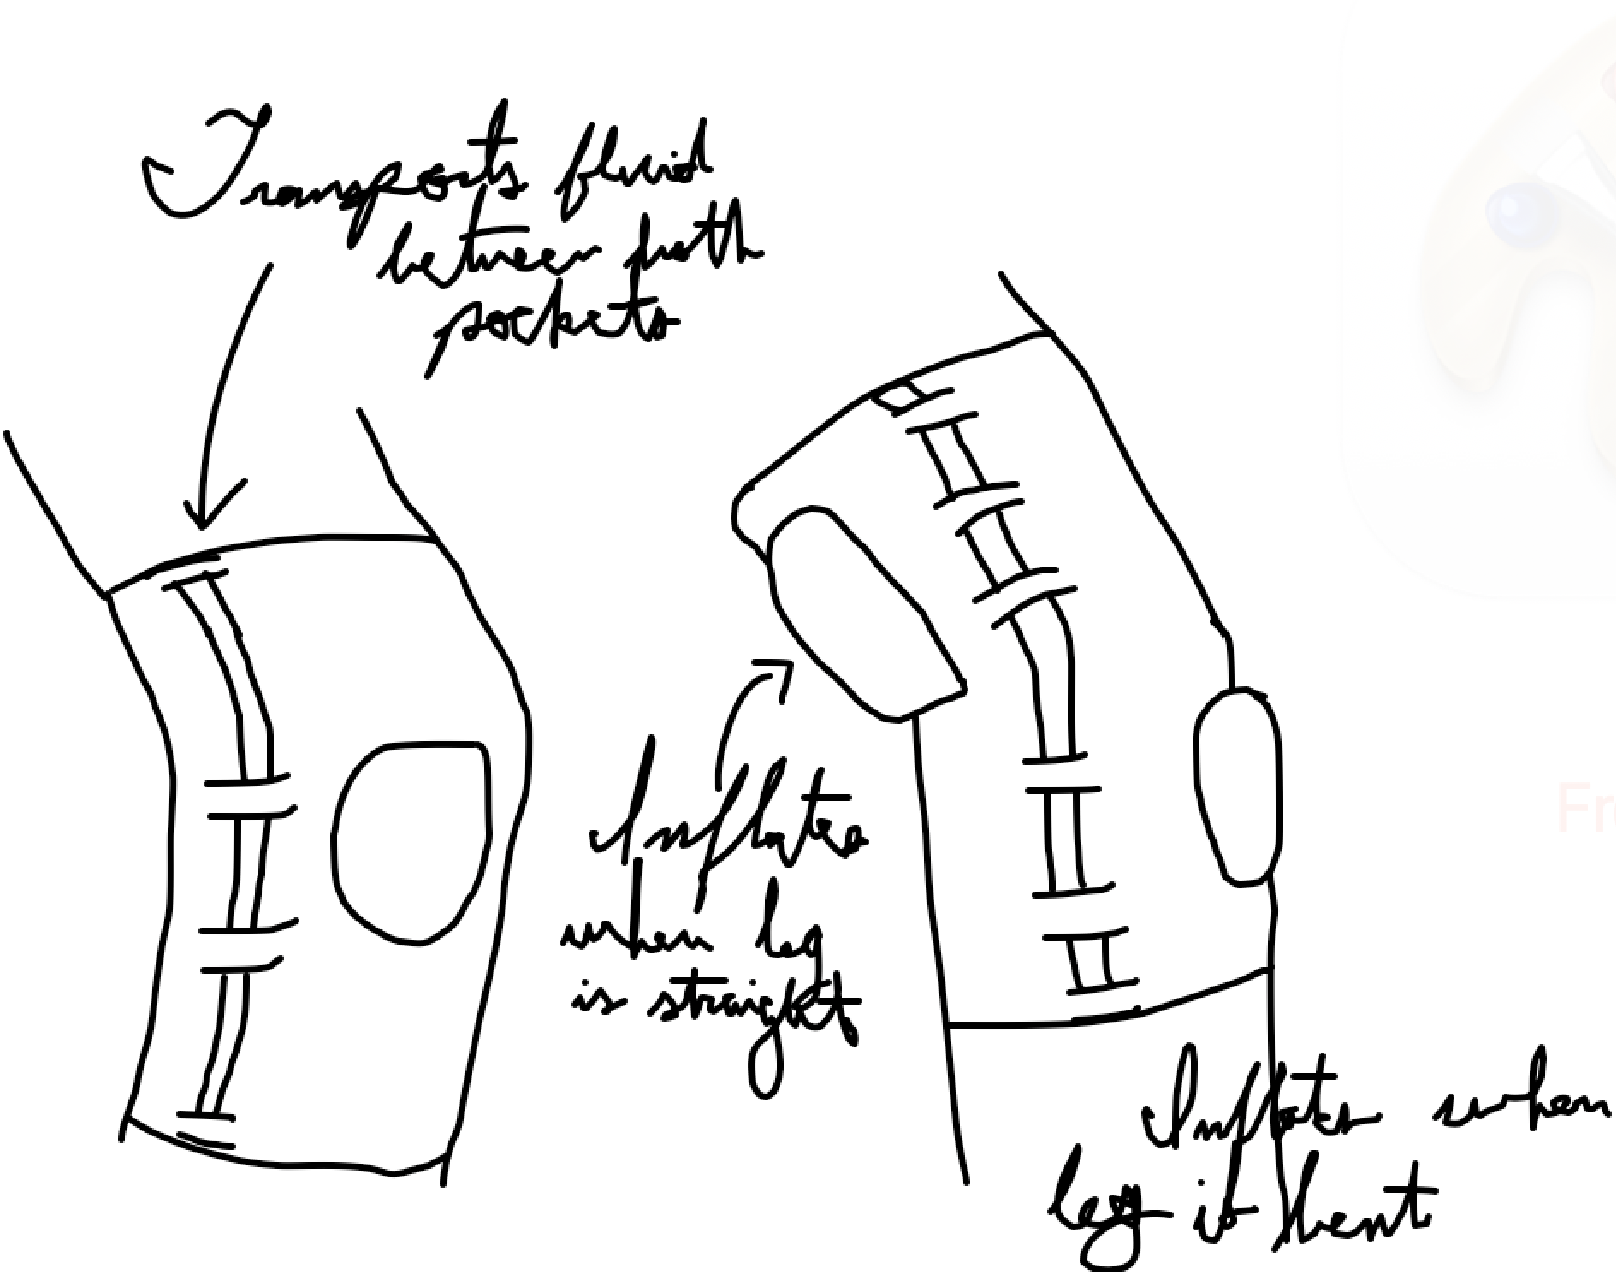 Transports fluid
between both
pockets
Inflates
when leg
is straight
Inflates when
leg is bent
Fr